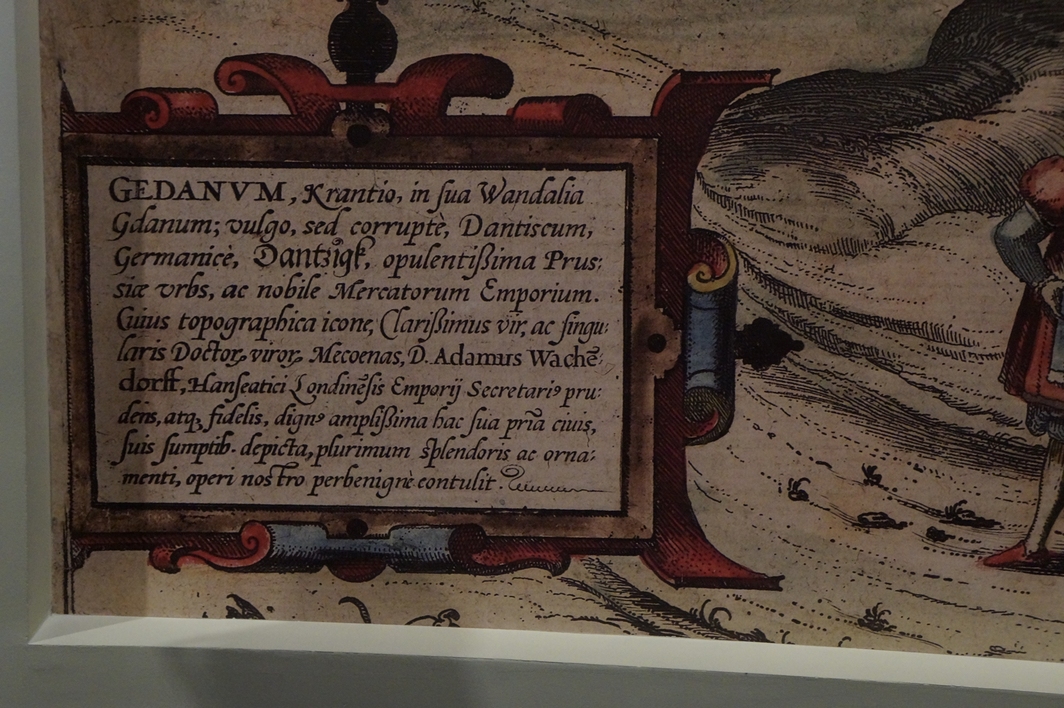 GEDANVM, Krantio, in ſua Wandalia
Gdanum; vulgo, sed corruptè, Dantiscum,
Germanicè, Dantzigk, opulentißima Prus:
siæ vrbs, ac nobile Mercatorum Emporium.
Cuius topographica icone, Clarißimus vir, ac ſingu:
laris Doctoꝝ viroꝝ Mecoenas, D. Adamus Wachē
dorff, Hanſeatici Londinēſis Emporij Secretariꝰ pru:
dens, atqꝫ fidelis, dignꝰ amplißima hac ſua pr̄ia ciuis,
ſuis ſumptib. depicta, plurimum ſplendoris ac orna:
menti, operi nostro perbenignè contulit